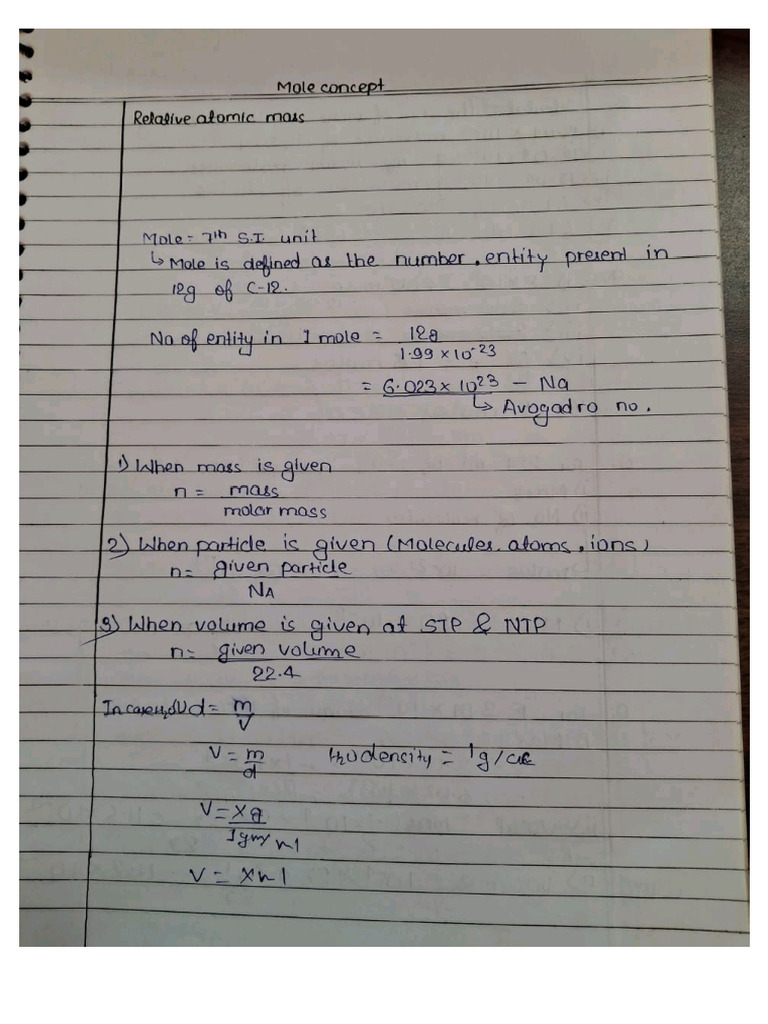 Mole concept
Relative atomic mass
Mole = 7th S.I. unit
↳ Mole is defined as the number, entity present in
12g of C-12.
No of entity in 1 mole = 12g / 1.99 × 10-23
= 6.023 × 10 23 - Na
↳ Avogadro no.
1) When mass is given
n = mass / molar mass
2) When particle is given (Molecules, atoms, ions)
n = given particle / NA
3) When volume is given at STP & NTP
n = given volume / 22.4
In case d = m / V
V = m / d H2O density = 1g/cc
V = xg / 1gm/ml
V = x ml